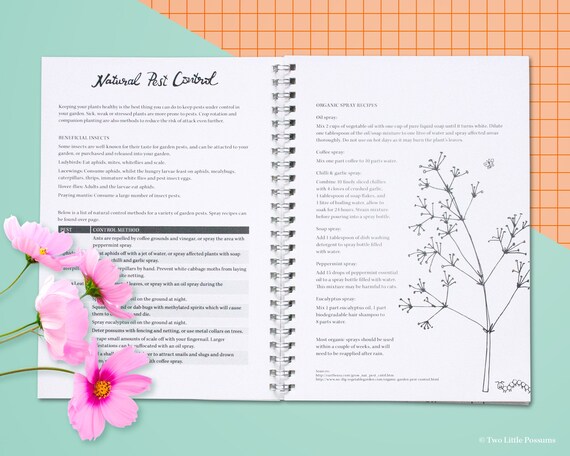 Natural Pest Control
Keeping your plants healthy is the best thing you can do to keep pests under control in
your garden. Sick, weak or stressed plants are more prone to pests. Crop rotation and
companion planting are also methods to reduce the risk of attack even further.
BENEFICIAL INSECTS
Some insects are well known for their taste for garden pests, and can be attracted to your
garden, or purchased and released into your garden.
Ladybirds: Eat aphids, mites, whiteflies and scale.
Lacewings: Consume aphids, whilst the hungry larvae feast on aphids, mealybugs,
caterpillars, thrips, immature white flies and pest insect eggs.
Hover-flies: Adults and the larvae eat aphids.
Praying mantis: Consume a large number of insect pests.
Below is a list of natural control methods for a variety of garden pests. Spray recipes can
be found over page.
PEST CONTROL METHOD
Ants are repelled by coffee grounds and vinegar, or spray the area with
peppermint spray.
aphids off with a jet of water, or spray affected plants with soap
chilli and garlic spray.
by hand. Prevent white cabbage moths from laying
netting.
leaves, or spray with an oil spray during the
oil on the ground at night.
or dab bugs with methylated spirits which will cause
them to and die.
Spray eucalyptus oil on the ground at night.
Deter possums with fencing and netting, or use metal collars on trees.
small amounts of scale off with your fingernail. Larger
can be suffocated with an oil spray.
to attract snails and slugs and drown
with coffee spray.
ORGANIC SPRAY RECIPES
Oil spray:
Mix 2 cups of vegetable oil with one cup of pure liquid soap until it turns white. Dilute
one tablespoon of the oil/soap mixture to one litre of water and spray affected areas
thoroughly. Do not use on hot days as it may burn the plant's leaves.
Coffee spray:
Mix one part coffee to 10 parts water.
Chilli & garlic spray:
Combine 10 finely sliced chillies
with 6 cloves of crushed garlic,
1 tablespoon of soap flakes, and
1 litre of boiling water, allow to
soak for 24 hours. Strain mixture
before pouring into a spray bottle.
Soap spray:
Add 1 tablespoon of dish washing
detergent to spray bottle filled
with water.
Peppermint spray:
Add 15 drops of peppermint essential
oil to a spray bottle filled with water.
This mixture may be harmful to cats.
Eucalyptus spray:
Mix 1 part eucalyptus oil, 1 part
biodegradable hair shampoo to
8 parts water.
Most organic sprays should be used
within a couple of weeks, and will
need to be reapplied after rain.
Sources:
© Two Little Possums